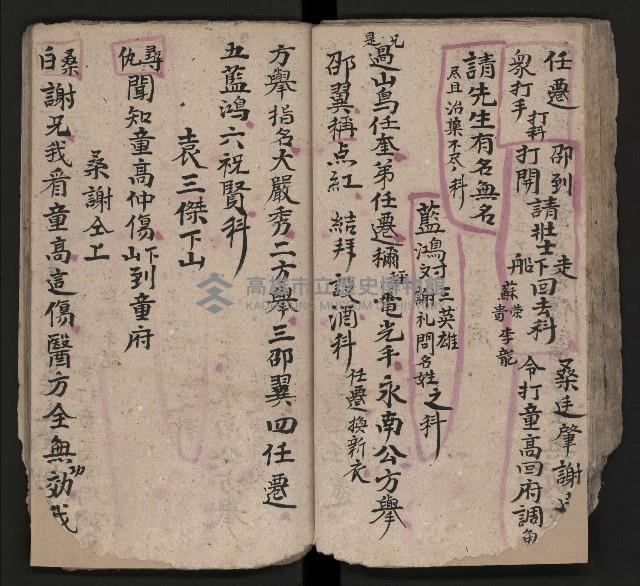 任遷 邵到 走
桑廷肇謝
衆打手 打科 打開 請壯士下船 回去科
蘇榮 李龍
貴
令打童高回府調
請先生有名無名
尽且治藥不尽〻科
藍鴻对謝礼問名姓之科
三英雄
兄是
過山鳥任奎弟任遷稱 電光手永南公方舉
邵翼稱点紅 結拜 設酒科 任遷換新衣
方舉指名大嚴秀二方舉三邵翼四任遷
五藍鴻六祝賢科
袁三傑下山
尋仇 聞知童高仲傷下山到童府
桑謝仝上
桑白 謝兄我看童高這傷醫方全無効 我
高雄市立歷史博物館
KAOHSIUNG MUSEUM OF HISTORY